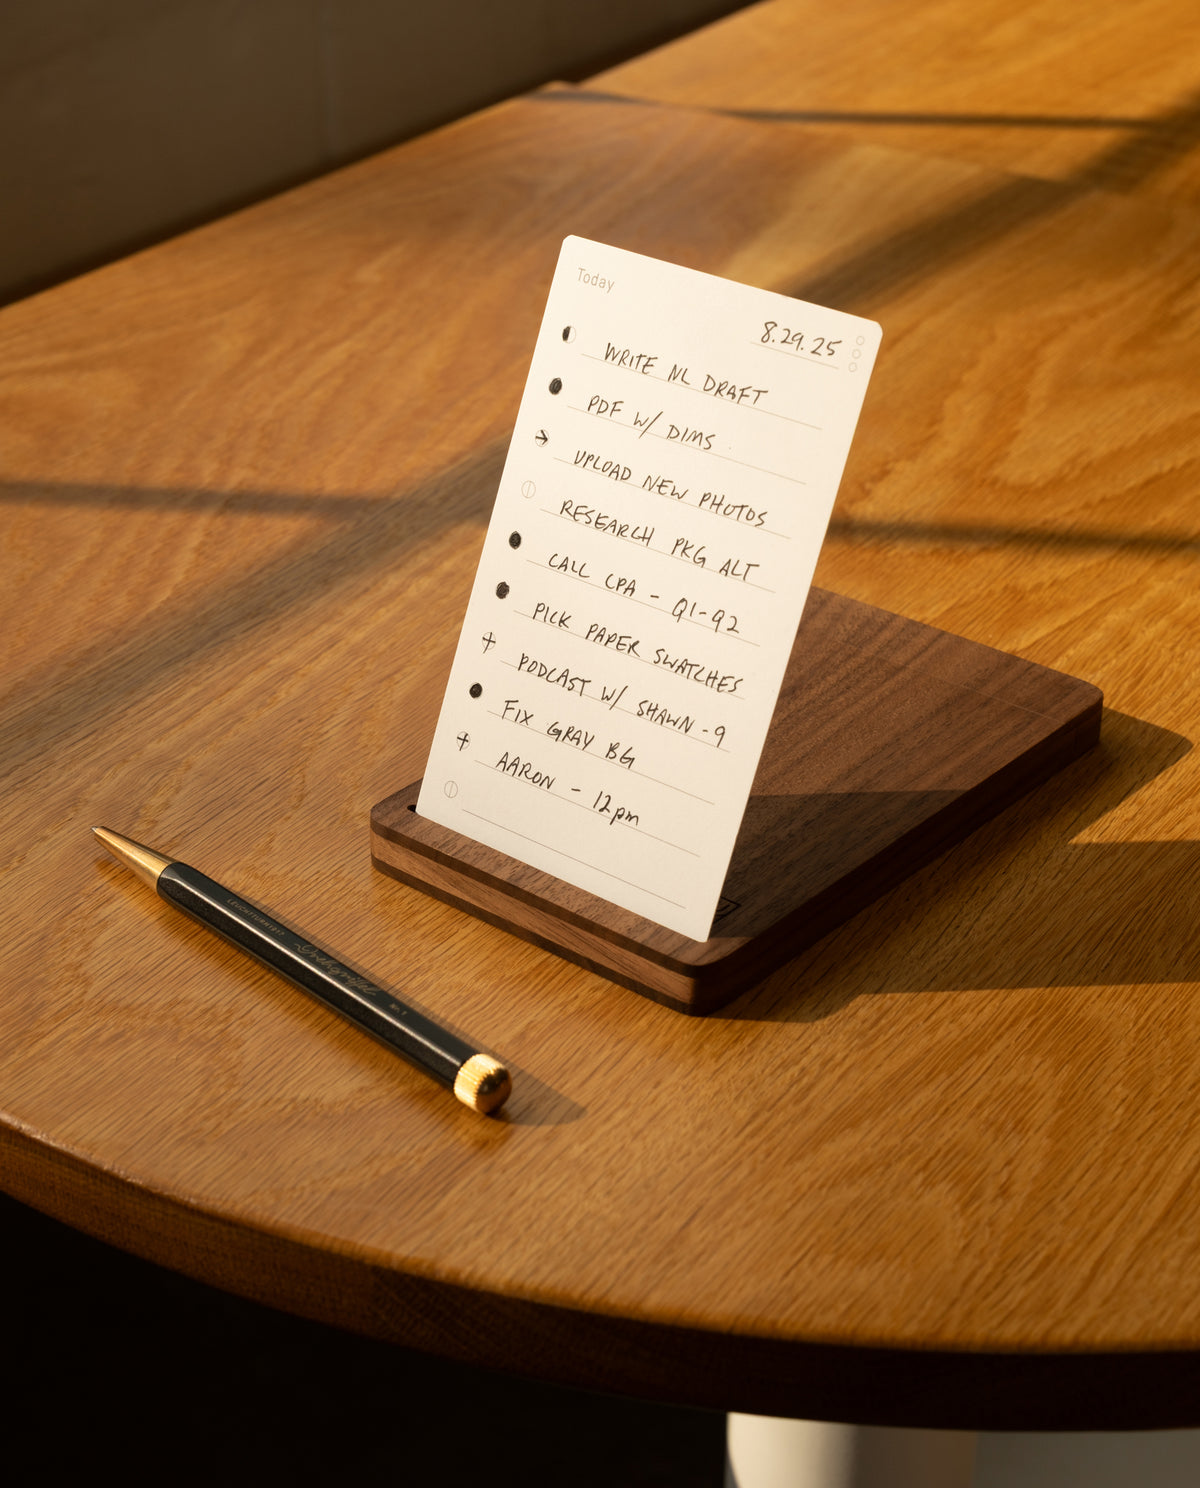 Today
8.29.25
WRITE NL DRAFT
PDF W/ DIMS
UPLOAD NEW PHOTOS
RESEARCH PKG ALT
CALL CPA - Q1-Q2
PICK PAPER SWATCHES
PODCAST W/ SHAWN - 9
FIX GRAY BG
AARON - 12pm
LEUCHTTURM1917
Drehgriffel
Nr. 1